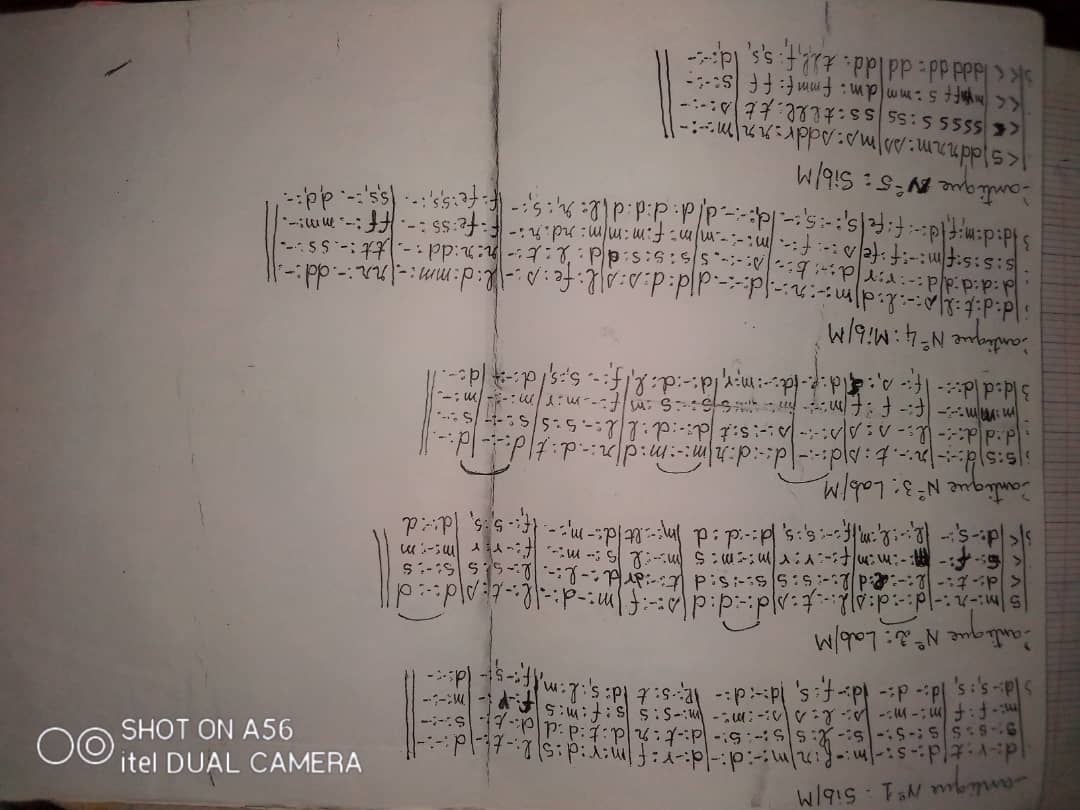 Cantique N°1 : Sib/M
|d:-r:t|d:-s:-|m:-f:r|m:-:d:-|d:-r:f|m:r:d:s|l:-t:-|d:-:-||
|s:-s:s|s:-s:-|s:-l:s|s:-:s:-|d:-t:r|d:t:d:d|d:-t:-|s:-:-
|m:-f:f|m:-m:-|s:-l:s|s:-:m:-|m:-s:s|s:f:m:s|f:-r:-|m:-:-
|d:-s,:s,|d:-d:-|d:-f:s,|d:-:d:-|l:-s:t|d:s,:l:m,|f:-s,:-|d:-:-
Cantique N°2 : Lab/M
|s|m:-r:-|d:-:d:s|l:-t:s|d:-:d:d|s:-:f|m:-d:-|l:-t:s|d:-:d||
|<|d:-t:-|l:-:d|l:-:s:s|s:-:s:d|t:-:dr|d:-l:-.|l:-s:s|s:-:s
|<|s:-f:-|m:-:m:m|f:-:r:r|m:-:m:s|m:-:l|s:-m:-.|f:-r:r|m:-:m
|<|d:-s,:-|l,:-:l,:m,|f,:-:s,:s,|d:-:d:d|m:-:lt|d:-m,:-.|f,:-s,:s,|d:-:d
Cantique N°3 : Lab/M
|s:s|d:-:-|r:-.t:s|d:-:-|d:-:d:r|m:-:m:d|r:-.d:t|d:-:-|d:-.||
|d:d|d:-:-|l:-s:s|s:-:-|s:-:s:t|d:-:d:l|l:-.s:s|s:-:-|s:-.
|m:m|m:-:-|f:-f:f|m:-:-|s|s:-:s:m|f:-.m:r|m:-:-|m:-.
|d:d|d:-:-|f:-s,:|d:-|d:-:m:r,|d:-:d:l,|f,:-.s,:s,|d:-:-|d:-.
Cantique N°4 : Mib/M
|d:d:t:l|s:-:l:d|m:-:r:-.|d:-:-.d|d:d:s:s|l:fe:s:-|l:d:mm:-.|rr:-.dd:-.||
|d:d:d:d|d:-:r:r|d:-:t:-.|s:-:-.s|s:s:s:d|d:l:t:-|r:r:dd:-.|tt:-.ss:-.
|s:s:s:f|m:-:f:fe|s:-:f:-.|m:-:-.m|m:f:m:m|m:rd:r:-|f:fe:ss:-.|ff:-.mm:-.
|d:d:m:f,|d:-:f:fe|s,:-:s,:-.|d,:-:-.d,|d:d:d:d|l:r,:s,:-|f:fe:s,s,:-.|s,s,:-.d,d,:-.
Cantique N°5 : Sib/M
|<s|ddrrm:ss|ms:sddr:rr|m:-:-||
|<<|ssss s:ss|ss:tlll:tt|s:-:-
|<<|mmff s:mm|dm:fmmf:ff|s:-:-
|<<|dddd d:dd|dd:tl,l,f,:s,s,|d:-:-
SHOT ON A56
itel DUAL CAMERA